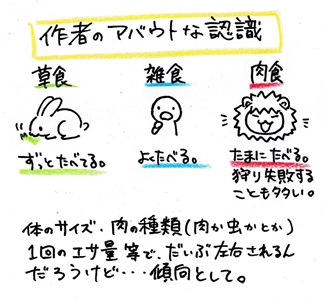 作者のアバウトな認識
草食
雑食
肉食
ずっとたべてる。
よくたべる。
たまにたべる。
狩り失敗する
こともタタい。
体のサイズ・肉の種類(肉か虫かとか)
1回のエサ量 等で、だいぶ左右されるん
だろうけど・・・傾向として。